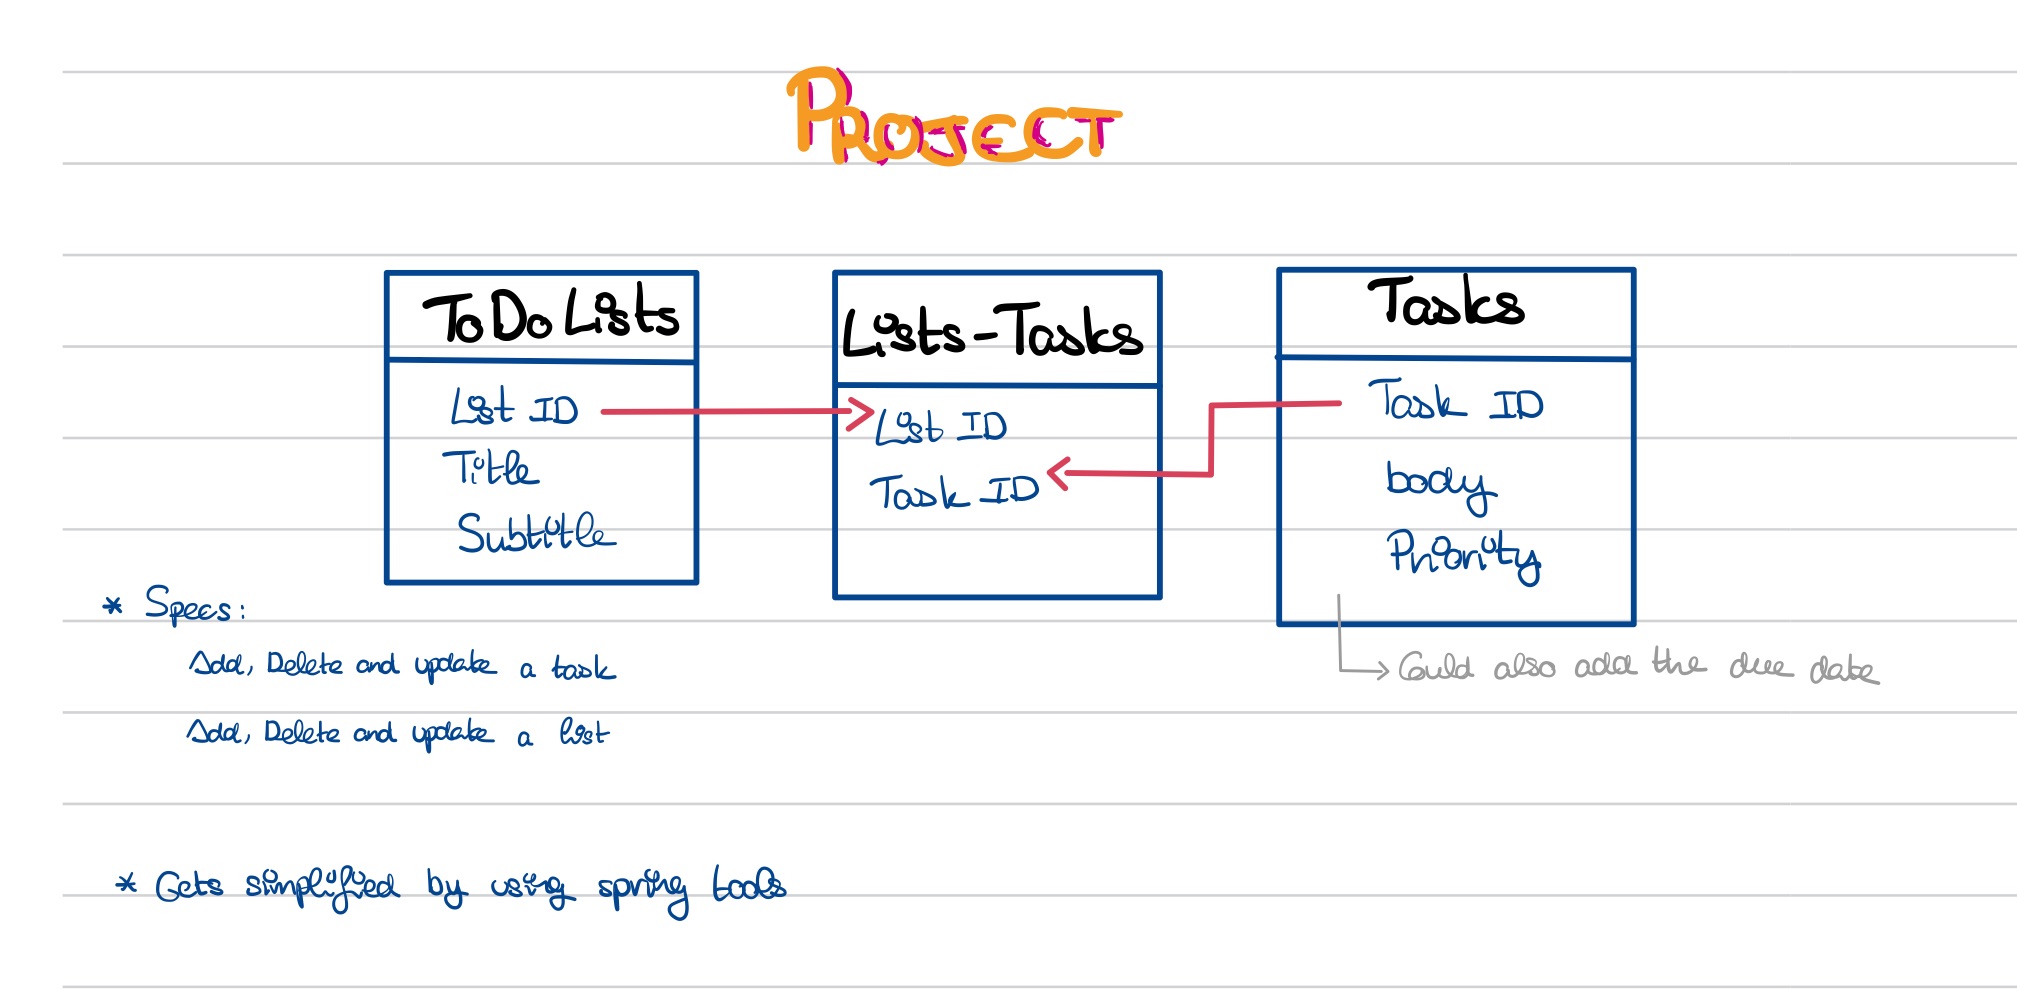 PROJECT
ToDo Lists
List ID
Title
Subtitle
Lists-Tasks
List ID
Task ID
Tasks
Task ID
body
Priority
Could also add the due date
* Specs:
Add, Delete and update a task
Add, Delete and update a list
* Gets simplified by using spring tools